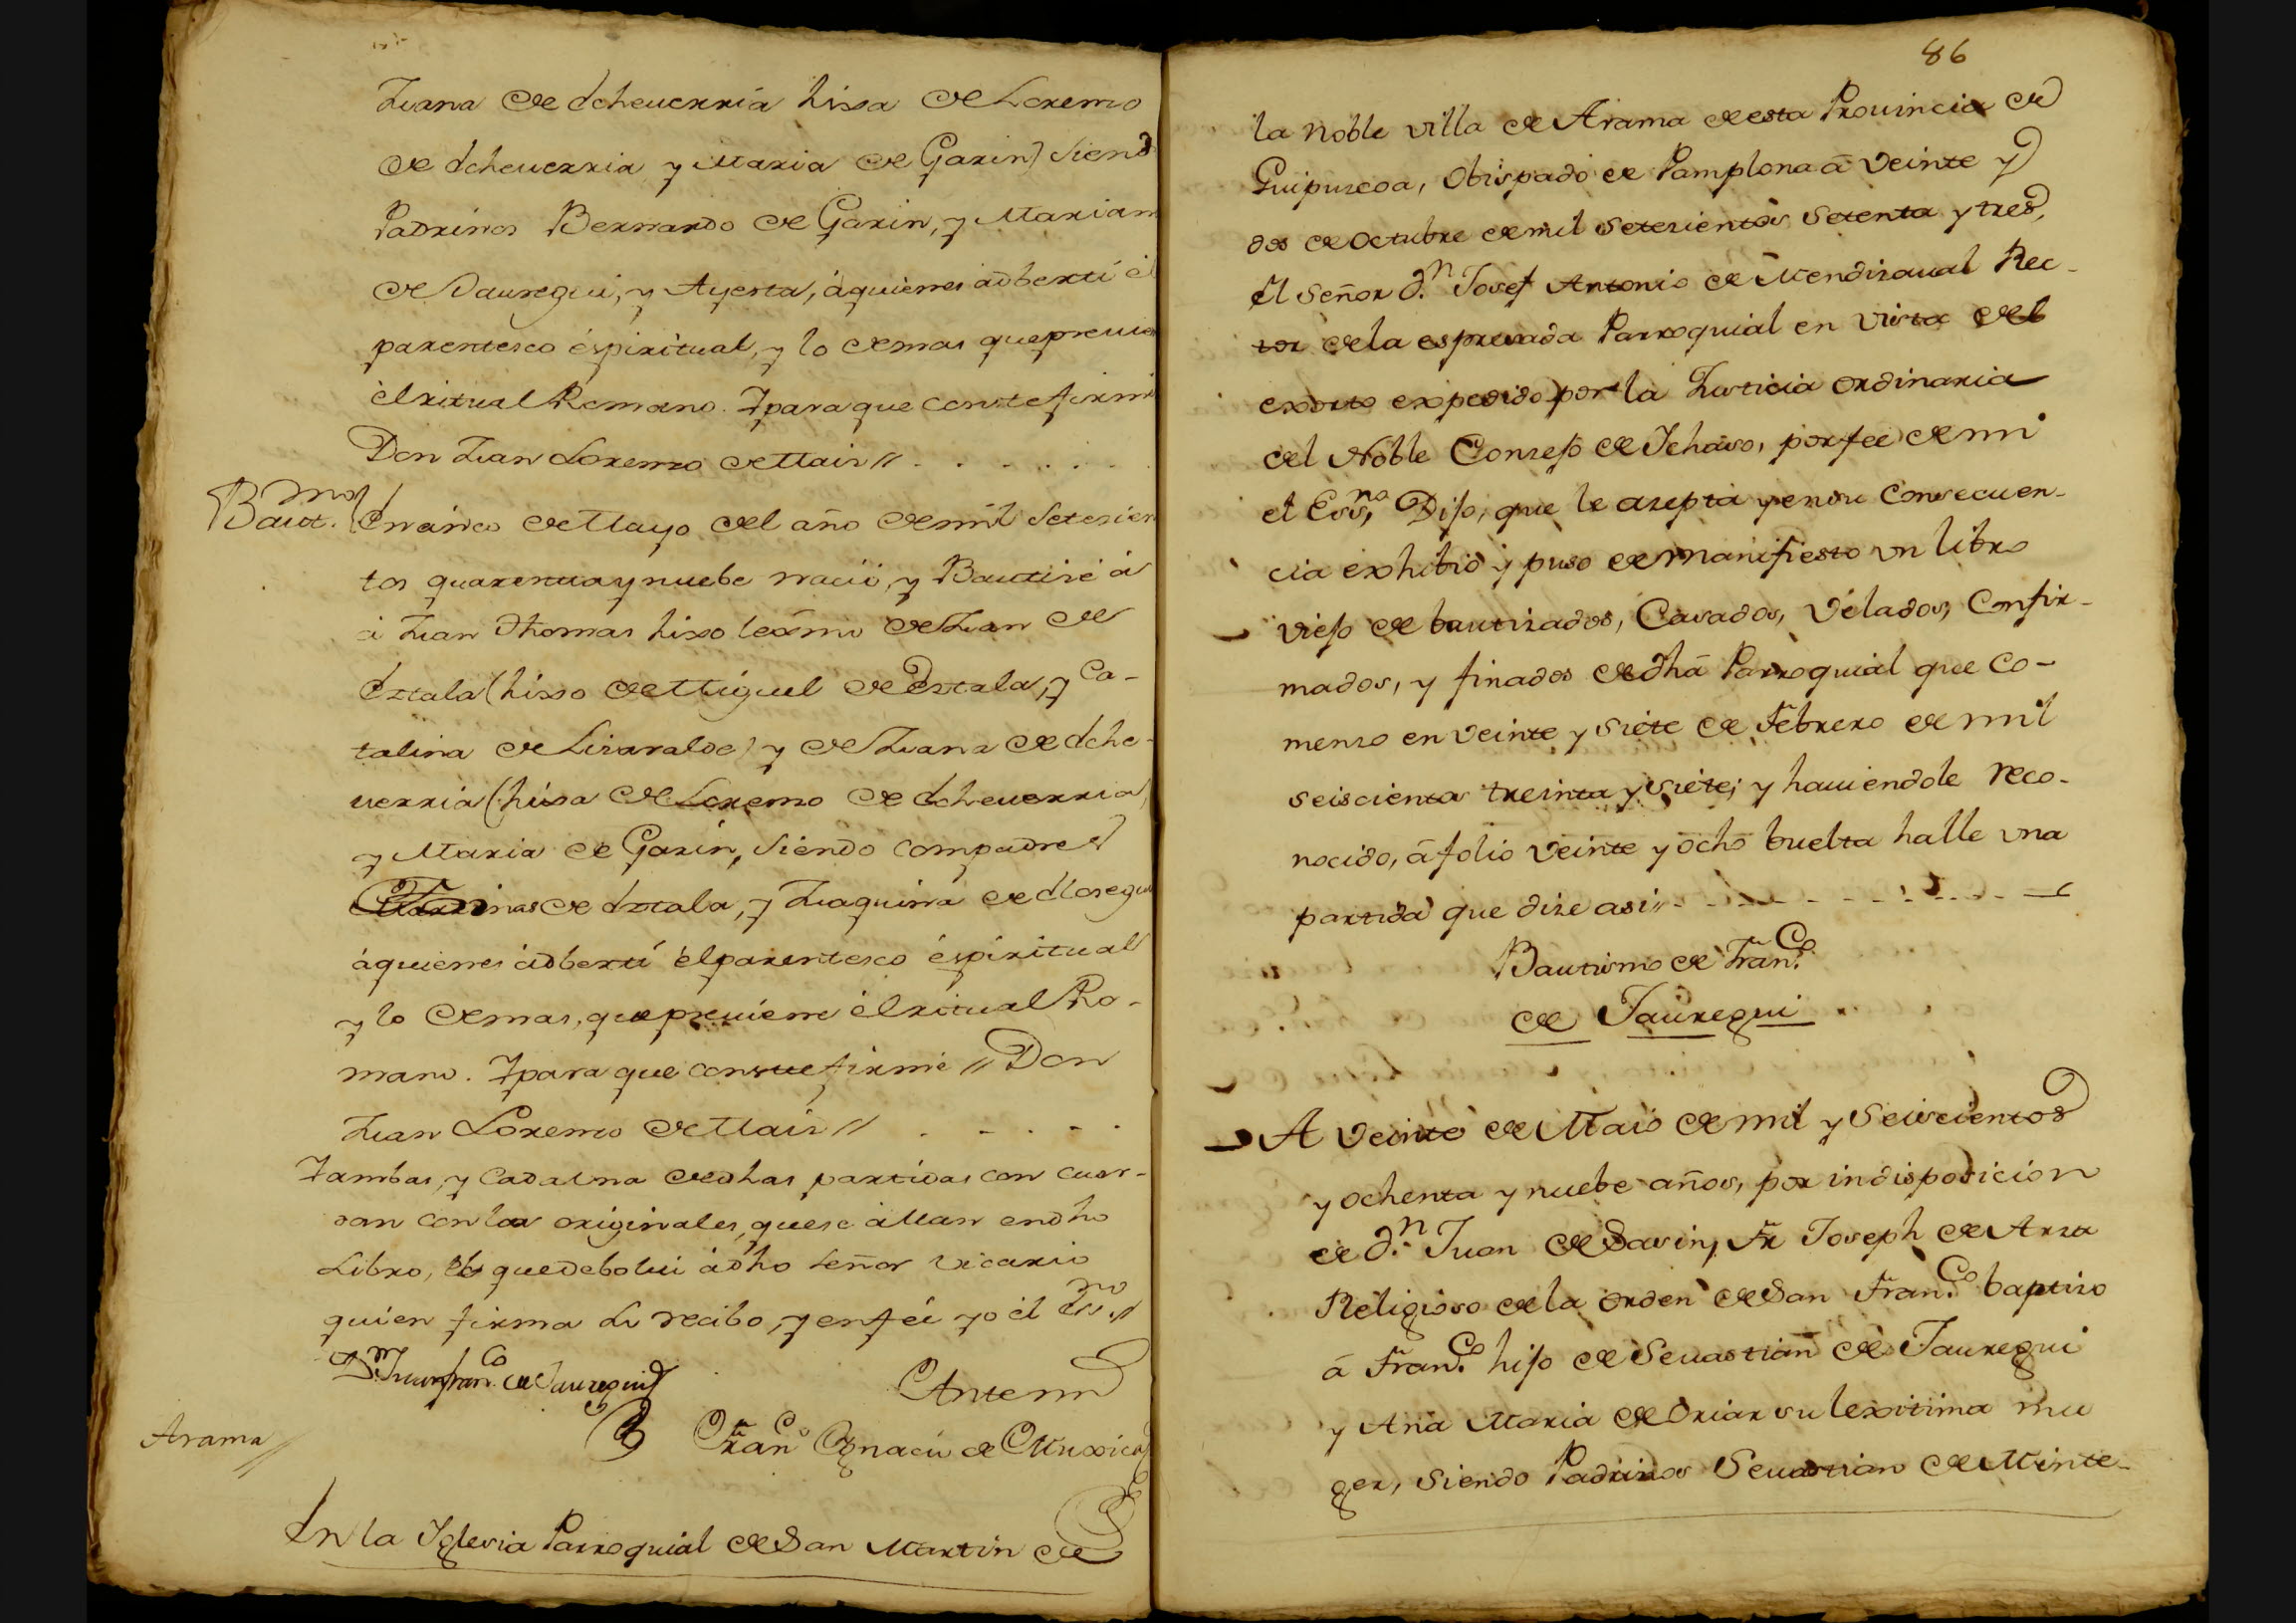 Juana de Echeuerria hixa de Lorenzo
de Echeuerria y Maria de Garin) siendo
Padrinos Bernardo de Garin, y Mariana
de Jauregui, y Ayerta, à quienes adbertí el
parentesco éspiritual, y lo demas que preuiene
èl ritual Romano. Y para que conste firmé
Don Juan Lorenzo de Maiz // . . . . . .
Baut.mo En cinco de Mayo del año de mil Setecien
tos quarenta y nuebe nació, y Bautizé à
à Juan Thomas hixo lexmo de Juan de
Eztala (hixo de Miguel de Eztala, y Ca-
talina de Lizaralde) y de Juana de Eche-
uerria (hixa de Lorenzo de Echeuerria,
y Maria de Garin, Siendo compadres
de Eztala, y Juaquina de Elosegui
à quienes adbertí èl parentesco éspiritual
y lo demas, que preuiene èl ritual Ro-
mano. Y para que conste firmé // Don
Juan Lorenzo de Maiz // . - . - .
Y ambas, y cada vna de dhas partidas con cuer-
dan con los originales, que se àllan en dho
Libro, èl que debolui à dho señor vicario
quien firma su recibo, y en feé yo èl Essno //
Dn Juan franco de Jauregui
Antemi
Franco Ygnacio de Muxica
Arama //
En la Yglesia Parroquial de San Martin de
86
la noble villa de Arama de esta Prouincia de
Guipuzcoa, Obispado de Pamplona à veinte y
dos de Octubre de mil setezientos setenta y tres,
el señor d.n Josef Antonio de Mendizaual Rec-
tor de la espresada Parroquial en vista del
exorto expedido por la Justicia ordinaria
del Noble Conzejo de Ichaso, por fee de mi
el Ess.no Dijo, que le azepta y en su consecuen-
cia exhibió y puso de manifiesto vn libro
viejo de bautizados, Casados, Velados, Confir-
mados, y finados de dha Parroquial que co-
menzo en veinte y siete de Febrero de mil
seiscientos treinta y siete; y hauiendole reco-
nocido, à folio veinte y ocho buelta halle vna
partida que dize asi // - - - - - - - - -
Bautismo de Fran.co
de Jauregui
A veinte de Maio de mil y Seiscientos
y ochenta y nuebe años, por indisposicion
de d.n Juan de Sasin, Fr Joseph de Arza
Religioso de la orden de San Fran.co baptizo
á Fran.co hijo de Seuastian de Jauregui
y Ana Maria de Oriar su lexitima mu
ger, siendo Padrinos Seuastian de Minte-